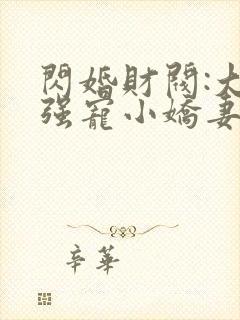 閃婚財閥:大
强寵小嬌妻
辛華